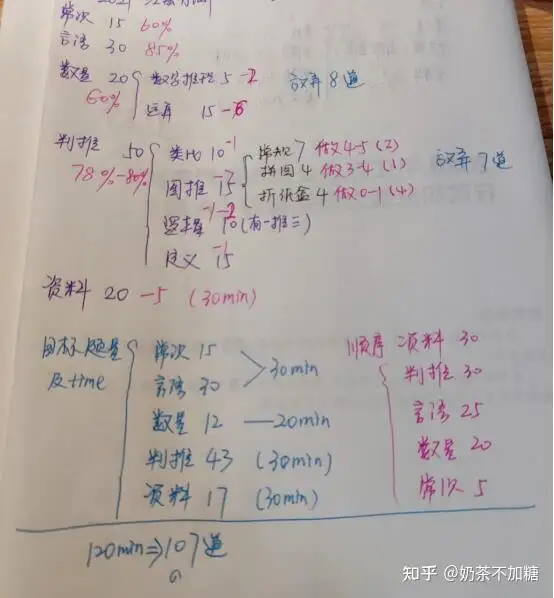 常识 15 60%
言语 30 85%
数量 20 数字推理 5 -2 放弃8道
60% 运算 15 -6
判推 50 类比 10 -1
78%-80% 图推 15 -7 常规 7 做4-5 (2) 放弃7道
拼图 4 做3-4 (1)
折纸盒 4 做0-1 (4)
逻辑 10 -1-2 (有一推三)
定义 15 -1
资料 20 -5 (30min)
目标题量及time
常识 15
言语 30 >30min
数量 12 —20min
判推 43 (30min)
资料 17 (30min)
顺序 资料 30
判推 30
言语 25
数量 20
常识 5
120min⇒107道
知乎 @奶茶不加糖